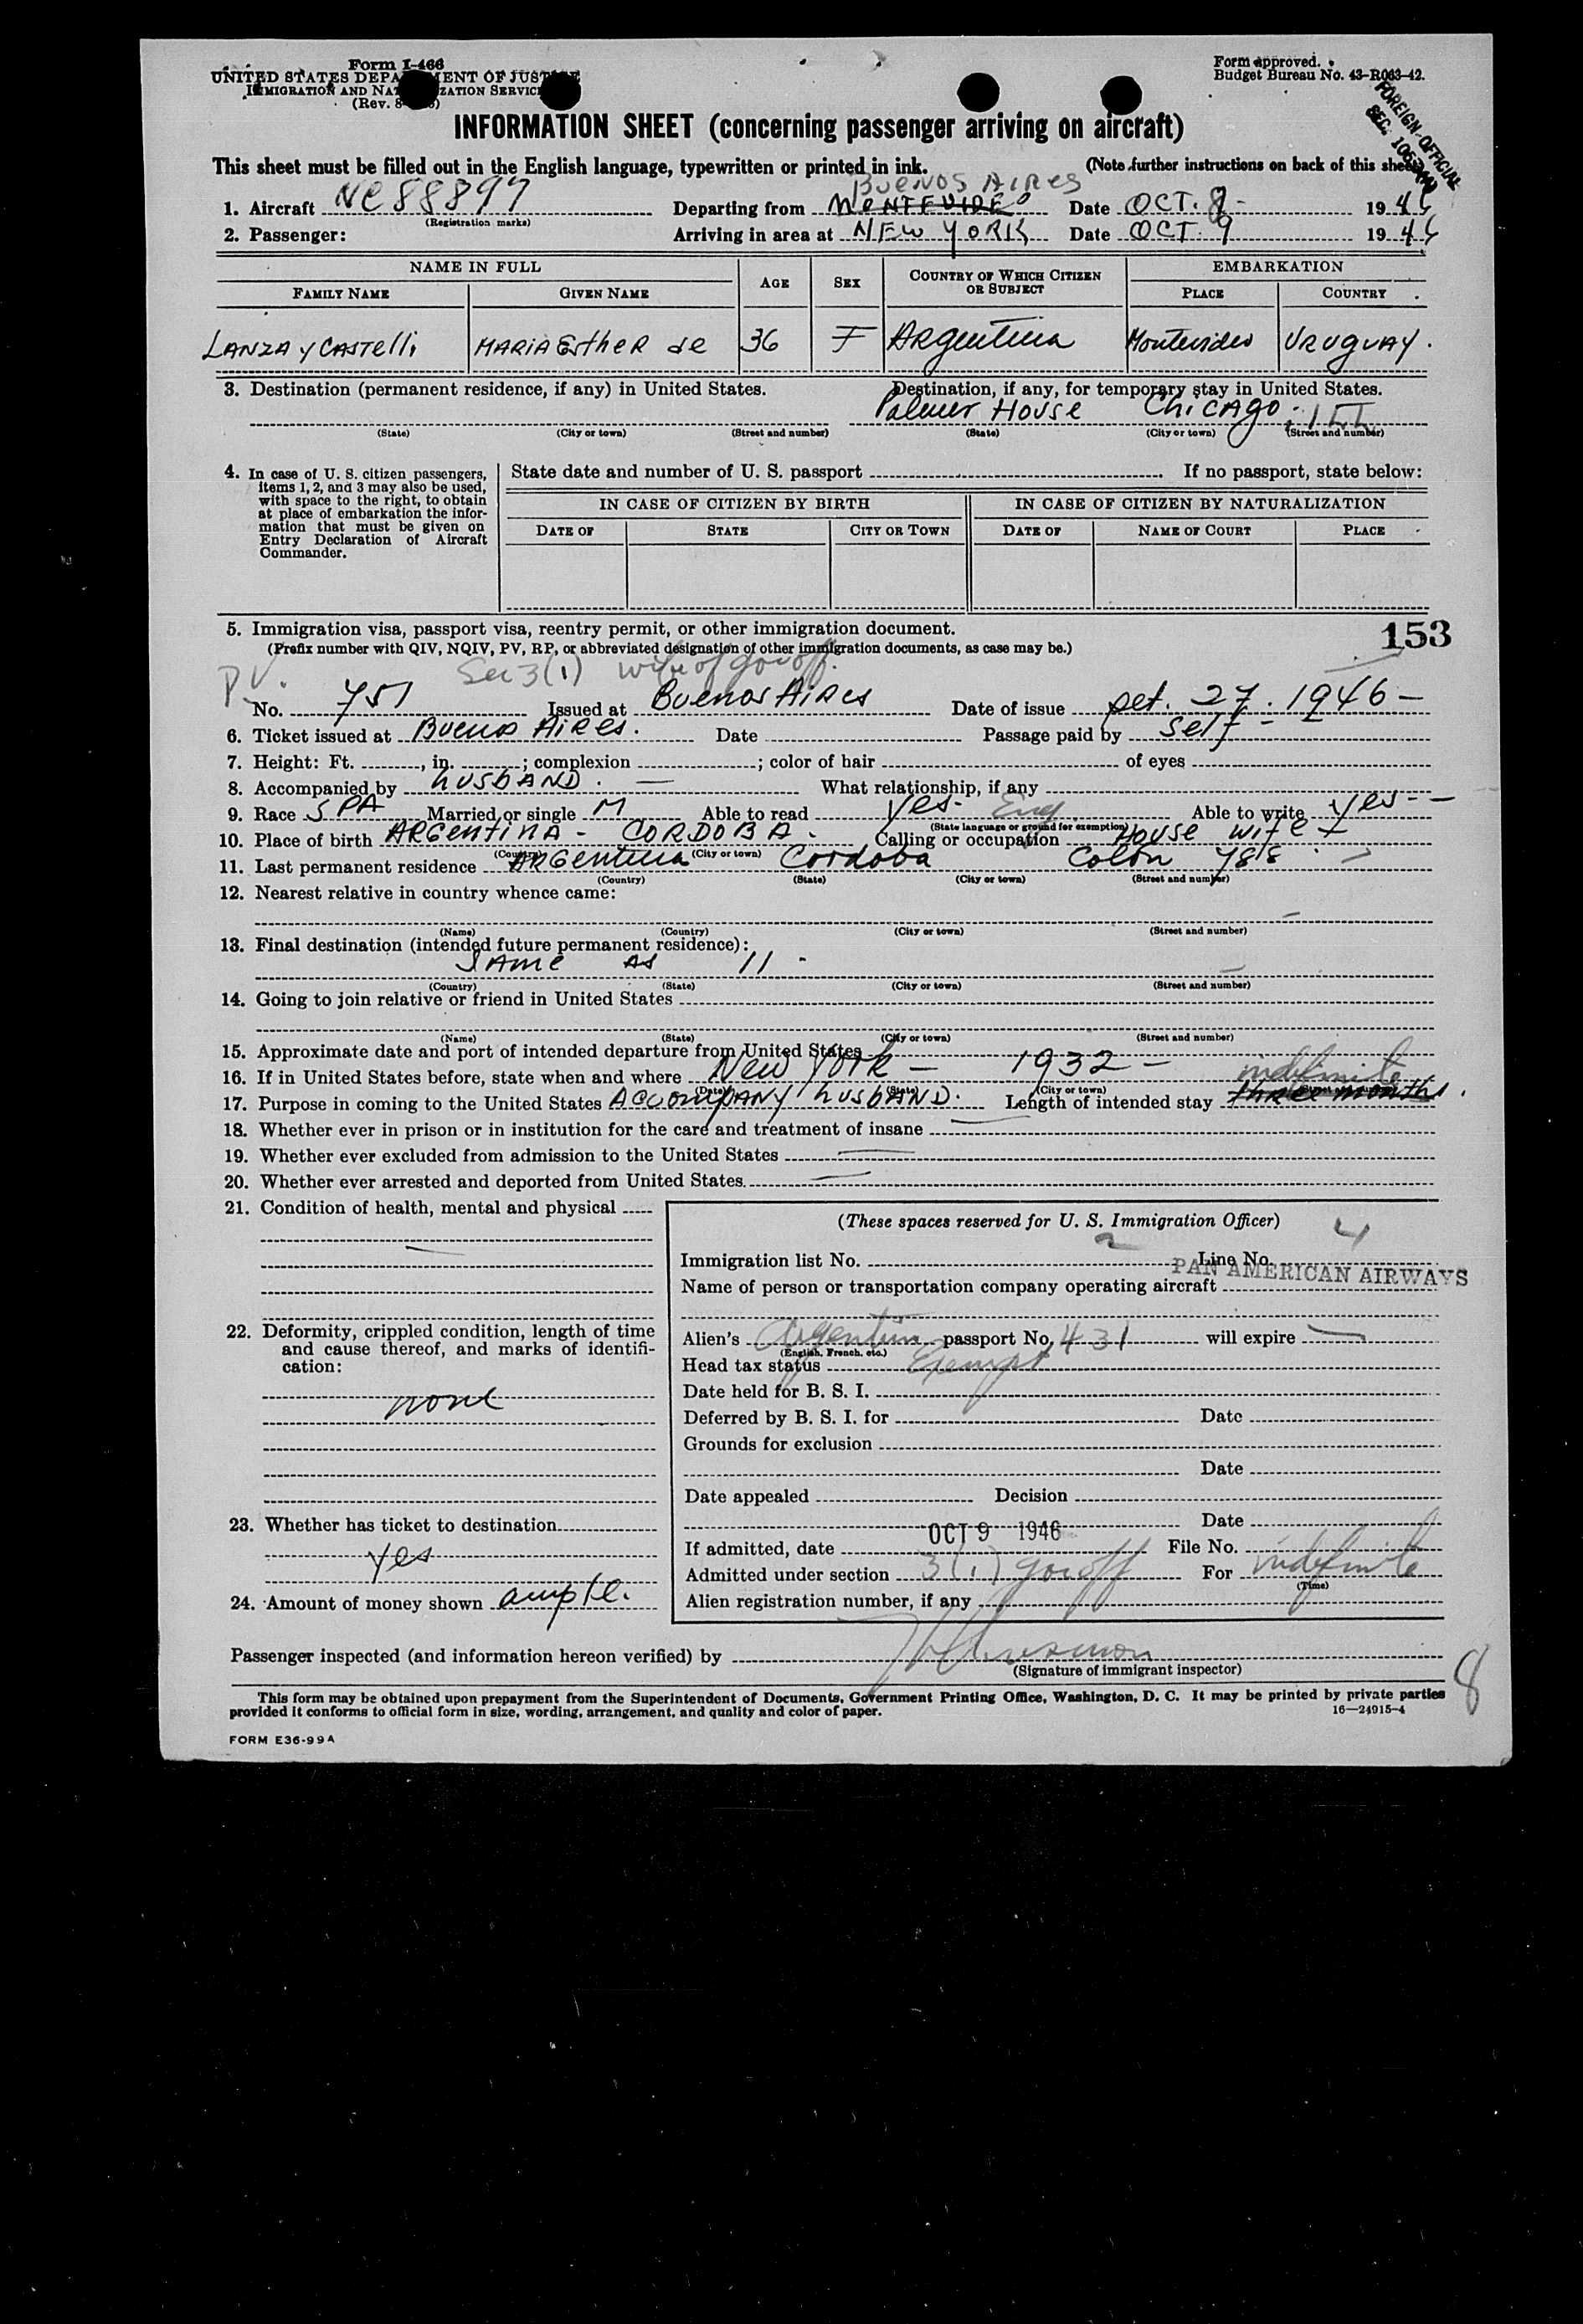 Form I-466
UNITED STATES DEPARTMENT OF JUSTICE
IMMIGRATION AND NATURALIZATION SERVICE
(Rev. 8-
Form approved.
Budget Bureau No. 43-R063-42.
FOREIGN OFFICIAL
SEC.
INFORMATION SHEET (concerning passenger arriving on aircraft)
This sheet must be filled out in the English language, typewritten or printed in ink. (Note further instructions on back of this sheet)
BUENOS AIRES
1. Aircraft NC 88897 Departing from MONTEVIDEO Date OCT. 8 - 1946
(Registration marks)
2. Passenger: Arriving in area at NEW YORK Date OCT. 9 1946
NAME IN FULL AGE SEX COUNTRY OF WHICH CITIZEN OR SUBJECT EMBARKATION
FAMILY NAME GIVEN NAME PLACE COUNTRY
LANZA y CASTElli MARIA EstheR de 36 F ARgentina Montevideo URUguAy.
3. Destination (permanent residence, if any) in United States. Destination, if any, for temporary stay in United States.
Palmer House Chicago. ILL
(State) (City or town) (Street and number) (State) (City or town) (Street and number)
4. In case of U. S. citizen passengers, items 1, 2, and 3 may also be used, with space to the right, to obtain at place of embarkation the information that must be given on Entry Declaration of Aircraft Commander.
State date and number of U. S. passport If no passport, state below:
IN CASE OF CITIZEN BY BIRTH IN CASE OF CITIZEN BY NATURALIZATION
DATE OF STATE CITY OR TOWN DATE OF NAME OF COURT PLACE
5. Immigration visa, passport visa, reentry permit, or other immigration document. 153
(Prefix number with QIV, NQIV, PV, RP, or abbreviated designation of other immigration documents, as case may be.)
P.V. Sec 3(1) wife of gov off.
No. 751 Issued at Buenos Aires Date of issue set. 27. 1946 -
6. Ticket issued at Buenos Aires. Date Passage paid by Self -
7. Height: Ft. , in. ; complexion ; color of hair of eyes
8. Accompanied by husbAND. - What relationship, if any
9. Race SPA Married or single M Able to read yes- Eng. Able to write yes--
(State language or ground for exemption)
10. Place of birth ARGentinA - CORDOBA - Calling or occupation House wife -
(Country) (City or town)
11. Last permanent residence ARGentina Cordoba Colón 788 -
(Country) (State) (City or town) (Street and number)
12. Nearest relative in country whence came:
(Name) (Country) (City or town) (Street and number)
13. Final destination (intended future permanent residence):
SAme As 11 -
(Country) (State) (City or town) (Street and number)
14. Going to join relative or friend in United States
(Name) (State) (City or town) (Street and number)
15. Approximate date and port of intended departure from United States
16. If in United States before, state when and where New York - 1932 - indefinite
(Date) (State) (City or town) (Street and number)
17. Purpose in coming to the United States ACCOMPANY husbAND. Length of intended stay three months.
18. Whether ever in prison or in institution for the care and treatment of insane
19. Whether ever excluded from admission to the United States
20. Whether ever arrested and deported from United States.
21. Condition of health, mental and physical
(These spaces reserved for U. S. Immigration Officer)
Immigration list No. 2 Line No. 4
PAN AMERICAN AIRWAYS
Name of person or transportation company operating aircraft
22. Deformity, crippled condition, length of time and cause thereof, and marks of identification:
none
Alien's Argentine passport No. 431 will expire
(English, French, etc.)
Head tax status Exempt
Date held for B. S. I.
Deferred by B. S. I. for Date
Grounds for exclusion
Date
Date appealed Decision
Date
23. Whether has ticket to destination
yes
If admitted, date OCT 9 1946 File No.
Admitted under section 3(1) gov off For indefinite
(Time)
24. Amount of money shown ample.
Alien registration number, if any
Passenger inspected (and information hereon verified) by
(Signature of immigrant inspector)
8
This form may be obtained upon prepayment from the Superintendent of Documents, Government Printing Office, Washington, D. C. It may be printed by private parties
provided it conforms to official form in size, wording, arrangement, and quality and color of paper. 16—24915-4
FORM E36-99A